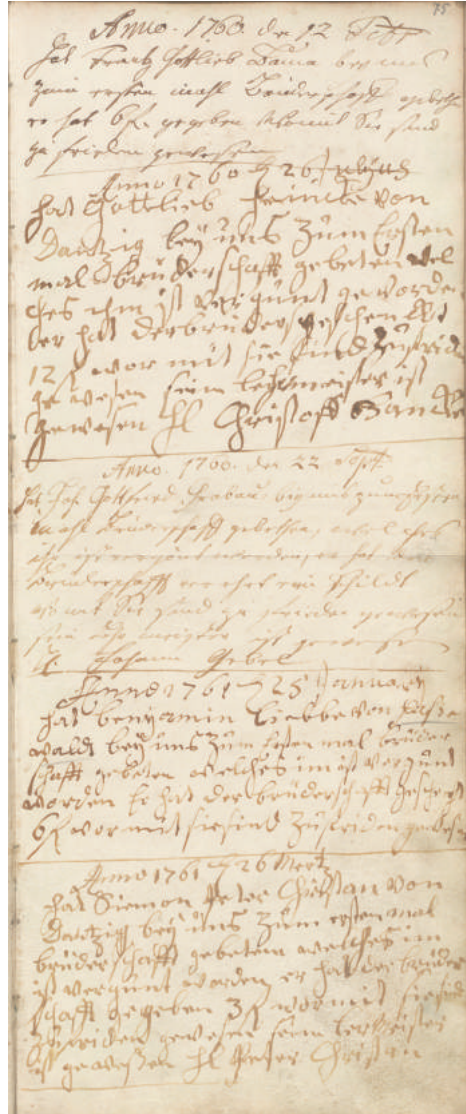 75
Anno. 1760. den 12 Febr
hat Frantz Gottlieb Bauer bey uns
zum ersten mahl Brüderschafft gebethen
er hat 6 fl. gegeben womit Sie sind
zu frieden gewesen
Anno 1760 d 26
hat Gottlieb Heincke von
Dantzig bey uns zum Ersten
mal brüderschafft gebeten wel
ches ihm ist vergünt geworden
er hat der brüders geschenckt
12 fl wor mit sie sind zu friden
gewesen sein lehrmeister ist
gewesen hl Christoff
Anno. 1760. den 22 Sept
hat Joh. Gottfried bey uns zum ersten
mahl Brüderschafft gebethen, welches
ihm ist vergönt worden, er hat
Brüderschafft verehret ein Schildt
womit Sie sind zu frieden gewesen
sein Lehrmeister ist gewesen
H. Johann Gebel
Anno 1761 d 25 Januarij
hat benjamin Liebbe von
waldt bey uns zum Ersten mal brüder
schafft gebeten welches im ist vergünt
worden Er hat der brüderschafft geschenckt
6 fl wor mit sie sind zu friden gewesen
Anno 1761 d 26 Mertz
hat Siemon Peter Christan von
Dantzig bey uns zum ersten mal
brüderschafft gebeten welches im
ist vergünt worden er hat der brüder
schafft gegeben 3 fl wormit sie sind
zu friden gewesen sein lermeister
ist gewesen hl Peter Christan